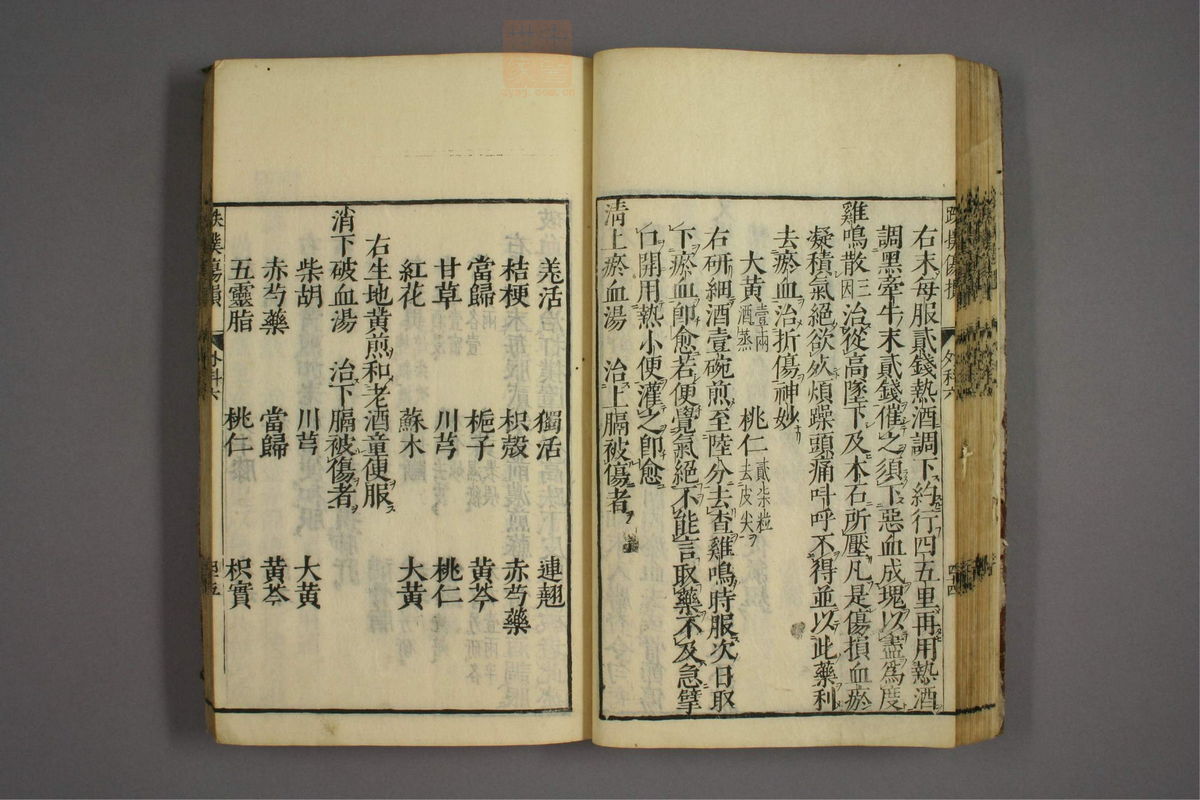 右末每服貳錢熱酒調下約行四五里再用熱酒
調黑牽牛末貳錢催之須下惡血成塊以盡為度
雞鳴散三因 治從高墜下及木石所壓凡是傷損血瘀
凝積氣絕欲死煩躁頭痛呌呼不得並以此藥利
去瘀血治折傷神妙
大黃壹兩酒蒸 桃仁貳柒粒去皮尖
右研細酒壹碗煎至陸分去查雞鳴時服次日取
下瘀血卽愈若便覺氣絕不能言取藥不及急擘
口開用熱小便灌之卽愈
清上瘀血湯 治上膈被傷者
羗活 獨活 連翹
桔梗 枳殼 赤芍藥
當歸 梔子 黃芩
甘草 川芎 桃仁
紅花 蘇木 大黃
右生地黃煎和老酒童便服
消下破血湯 治下膈被傷者
柴胡 川芎 大黃
赤芍藥 當歸 黃芩
五靈脂 桃仁 枳實
跌撲傷損 外科六